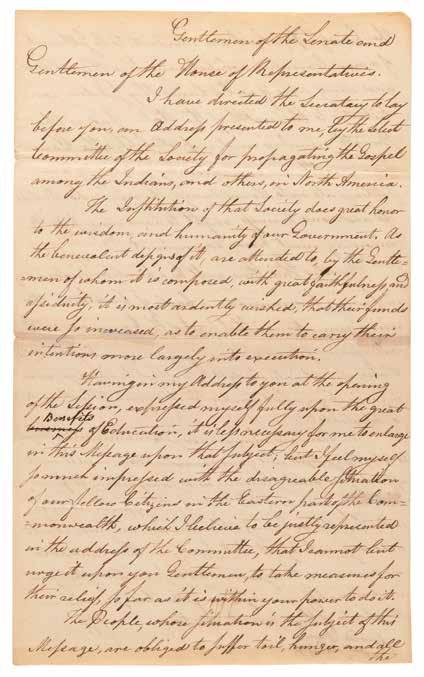 Gentlemen of the Senate and
Gentlemen of the House of Representatives.
I have directed the Secretary to lay
before you, an Address presented to me, by the Select
Committee of the Society for propagating the Gospel
among the Indians, and others, in North America.
The Institution of that Society does great honor
to the wisdom, and humanity of our Government. As
the benevolent designs of it, are attended to, by the Gentle=
=men of whom it is composed, with great faithfulness and
assiduity, it is most ardently wished, that their funds
were so increased, as to enable them to carry their
intentions more largely into execution.
Having in my Address to you at the opening
of the Session, expressed myself fully upon the great
Benefits
of Education, it is less necessary for me to enlarge
in this Message upon that subject, but I feel myself
so much impressed with the disagreeable situation
of our fellow Citizens in the Eastern part of the Com=
=monwealth, which I believe to be justly represented
in the address of the Committee, that I cannot but
urge it upon you Gentlemen, to take measures for
their relief, so far as it is within your power to do it.
The People, whose situation is the subject of this
Message, are obliged to suffer toil, hunger, and all
the